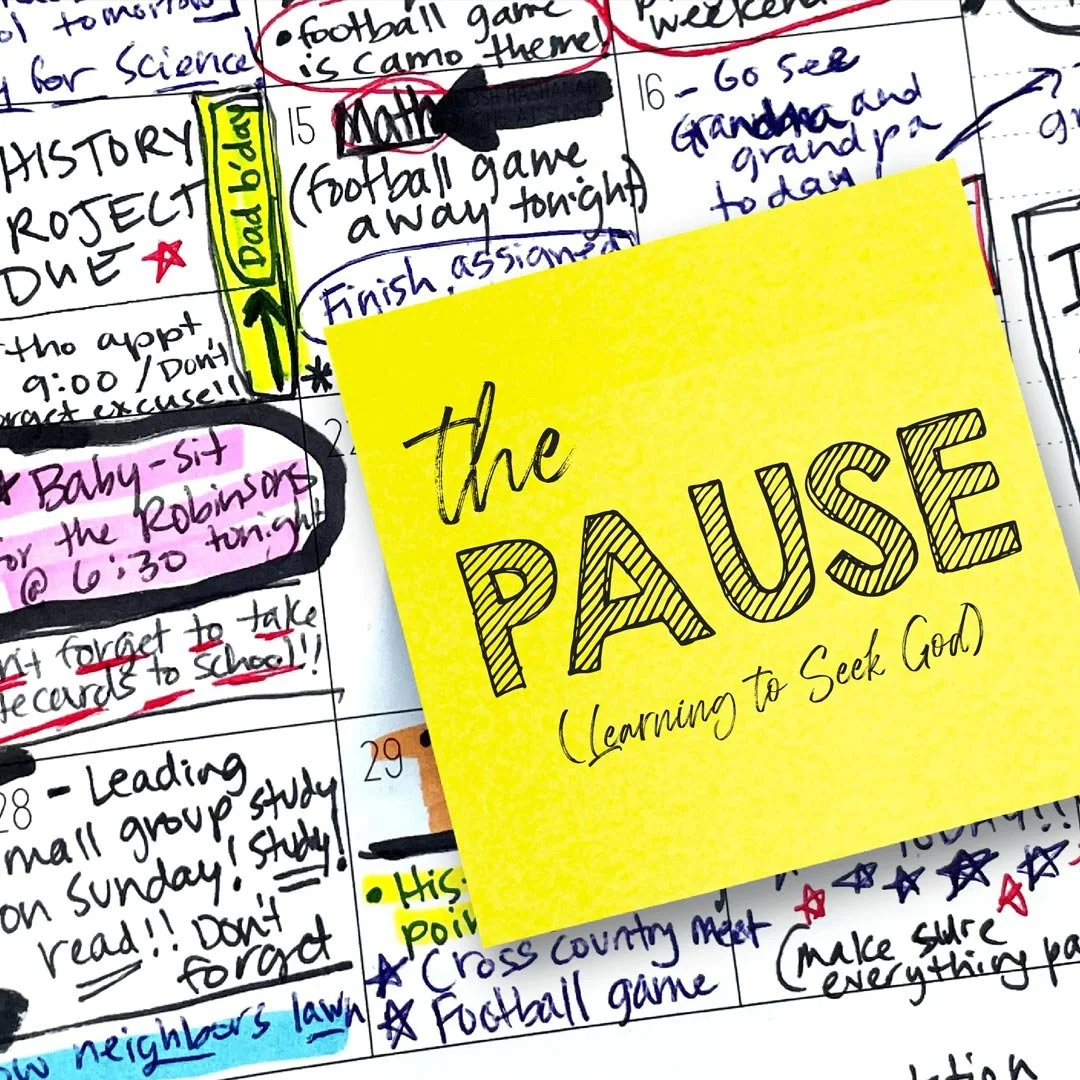 tomorrow
for Science!
• football game
is camo theme!
weekend
HISTORY
PROJECT
DUE
Dad b'day
15
Math
ROSH HASHANAH
(football game
away tonight)
Finish assigned
16 - Go see
Grandma and
grandpa
today
appt
9:00 / Don't
excuse!!
Baby-sit
the Robinsons
@ 6:30 tonight
forget to take
to school!!
the
PAUSE
(Learning to Seek God)
28 - Leading
small group study
on Sunday! Study!
read!! Don't
forget
neighbors lawn
29
Cross country meet
Football game
(make sure
everything